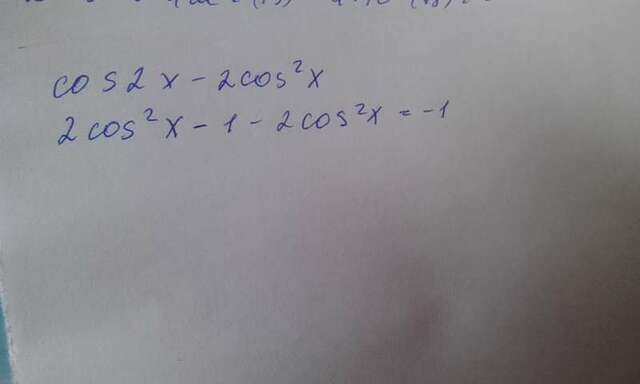 cos2x - 2cos²x
2cos²x - 1 - 2cos²x = -1